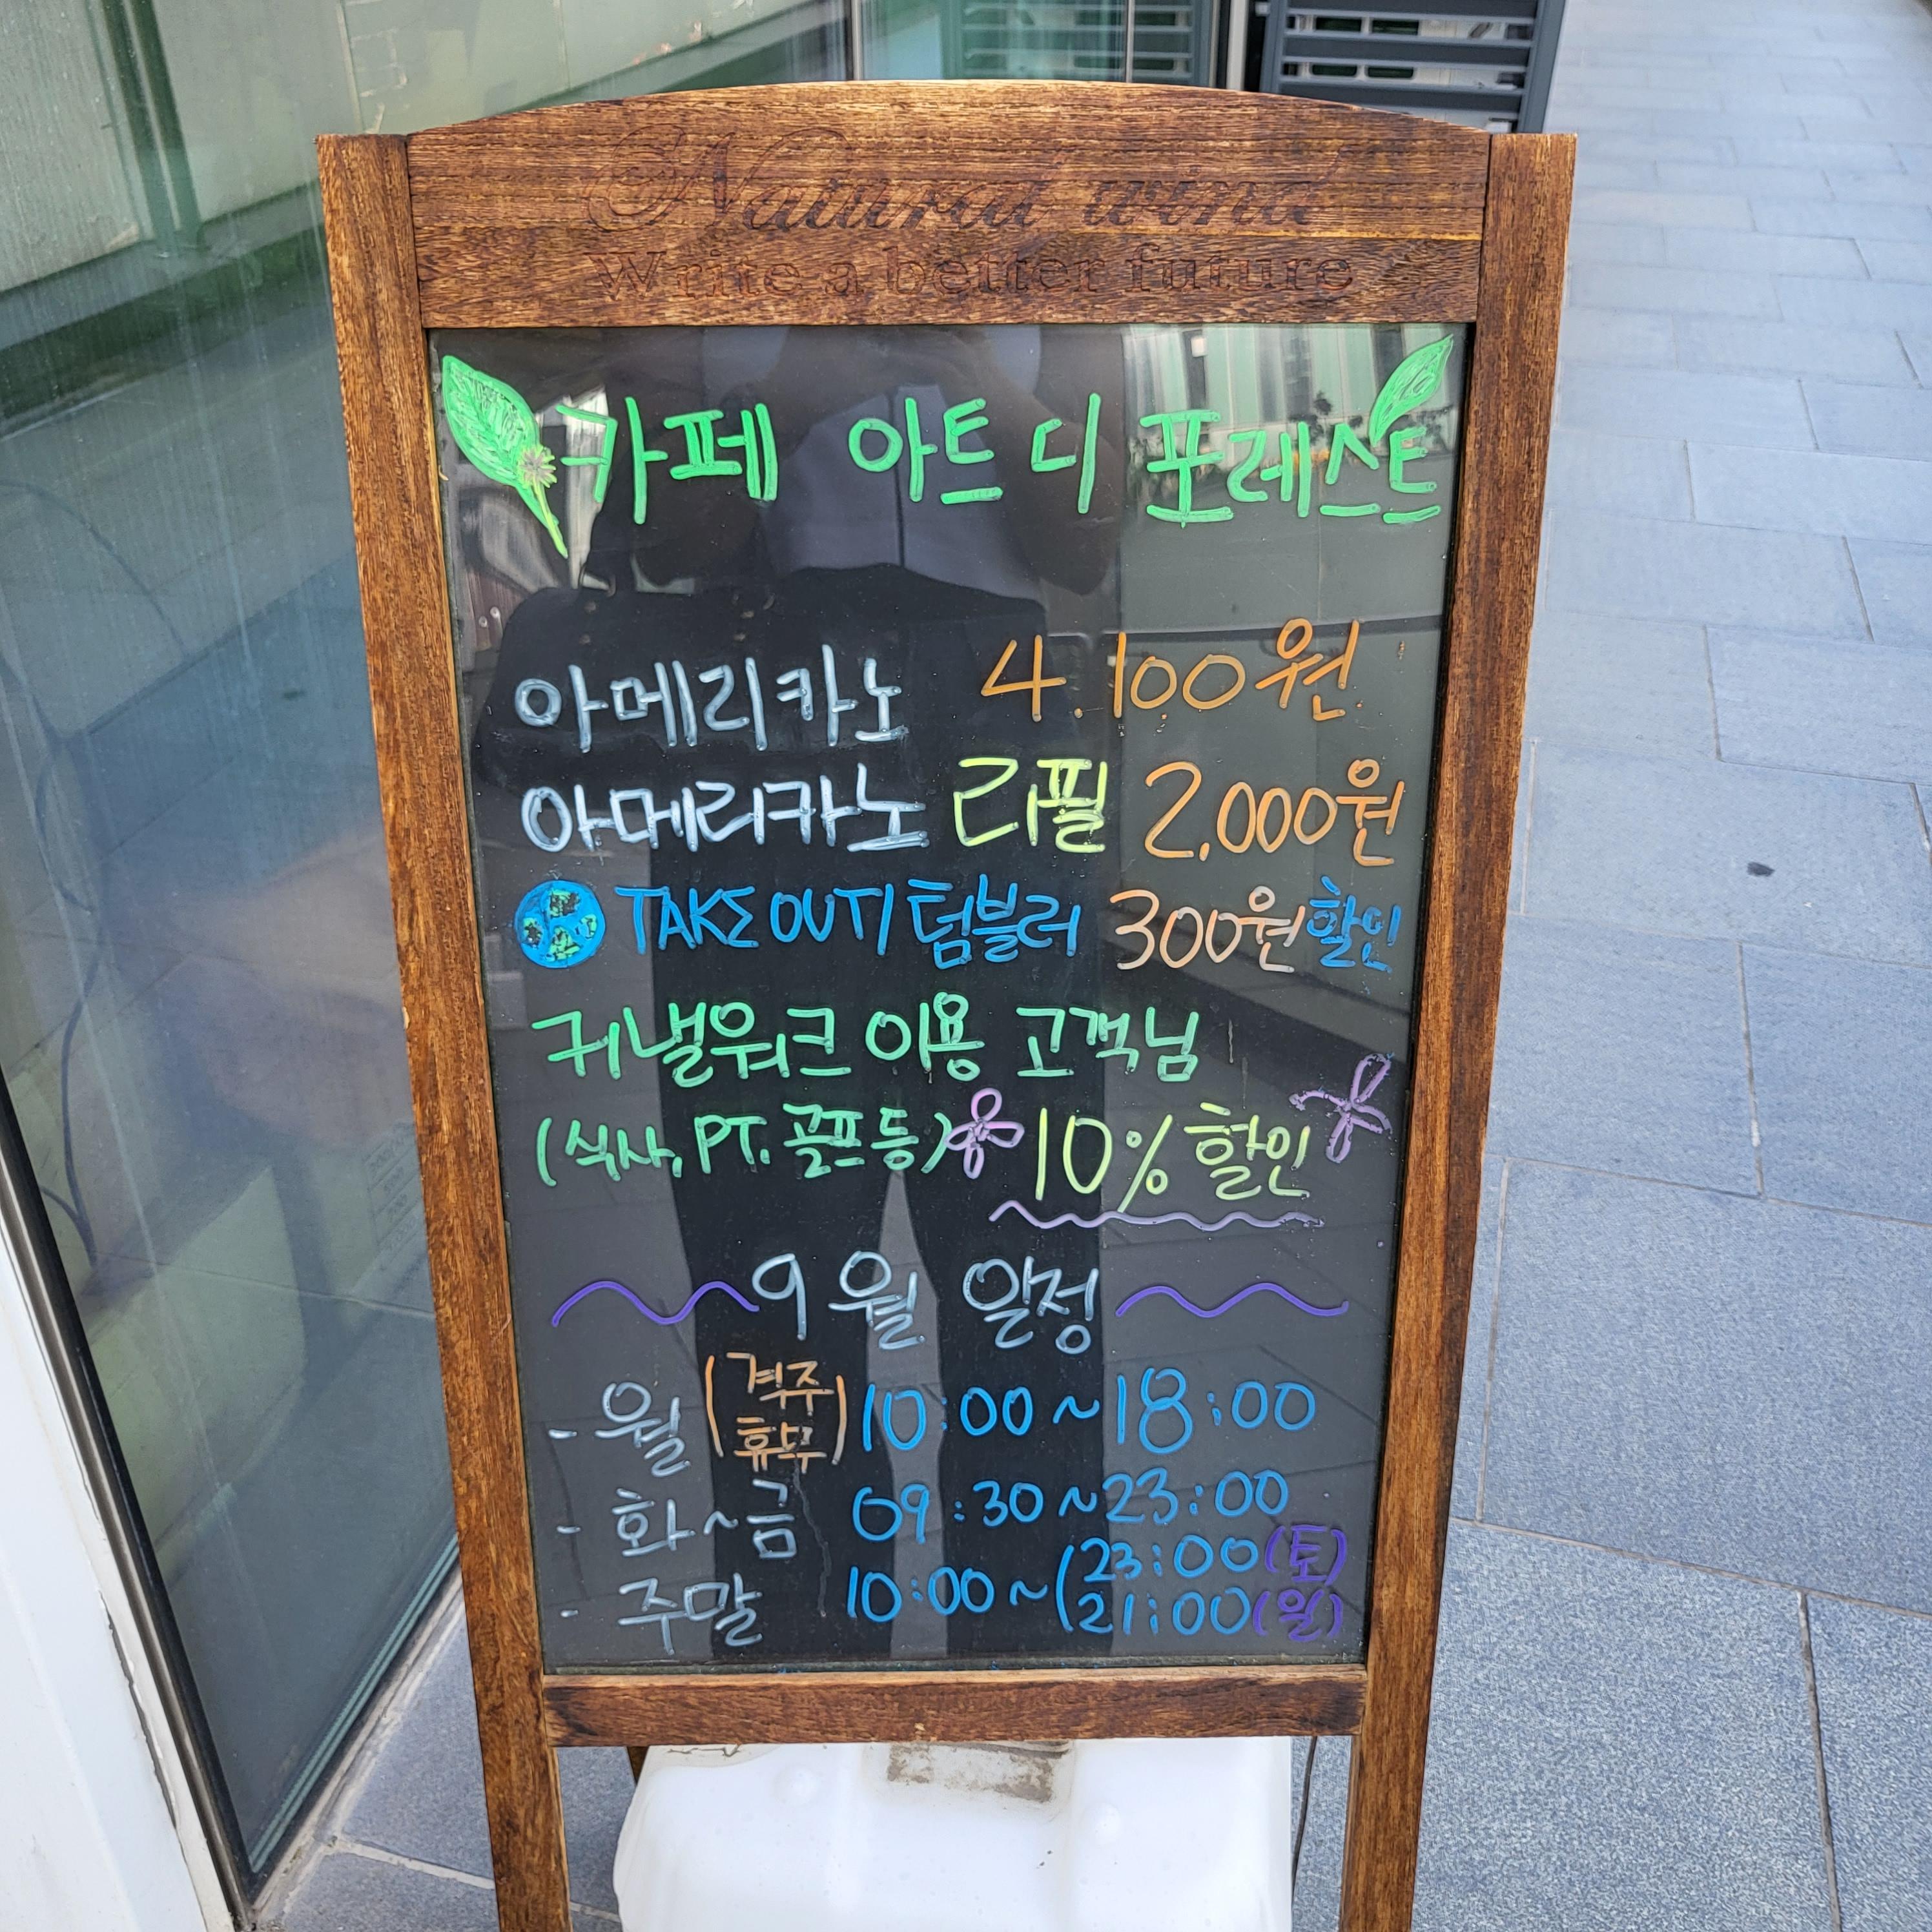 Natural wind
Write a better future
카페 아트 디 포레스트
아메리카노 4.100원
아메리카노 리필 2,000원
TAKE OUT/텀블러 300원 할인
커낼워크 이용 고객님
(식사, PT. 골프 등) 10% 할인
9월 일정
- 월 (격주 휴무) 10:00 ~ 18:00
- 화~금 09:30 ~ 23:00
- 주말 10:00 ~ (23:00 (토)
21:00 (일)